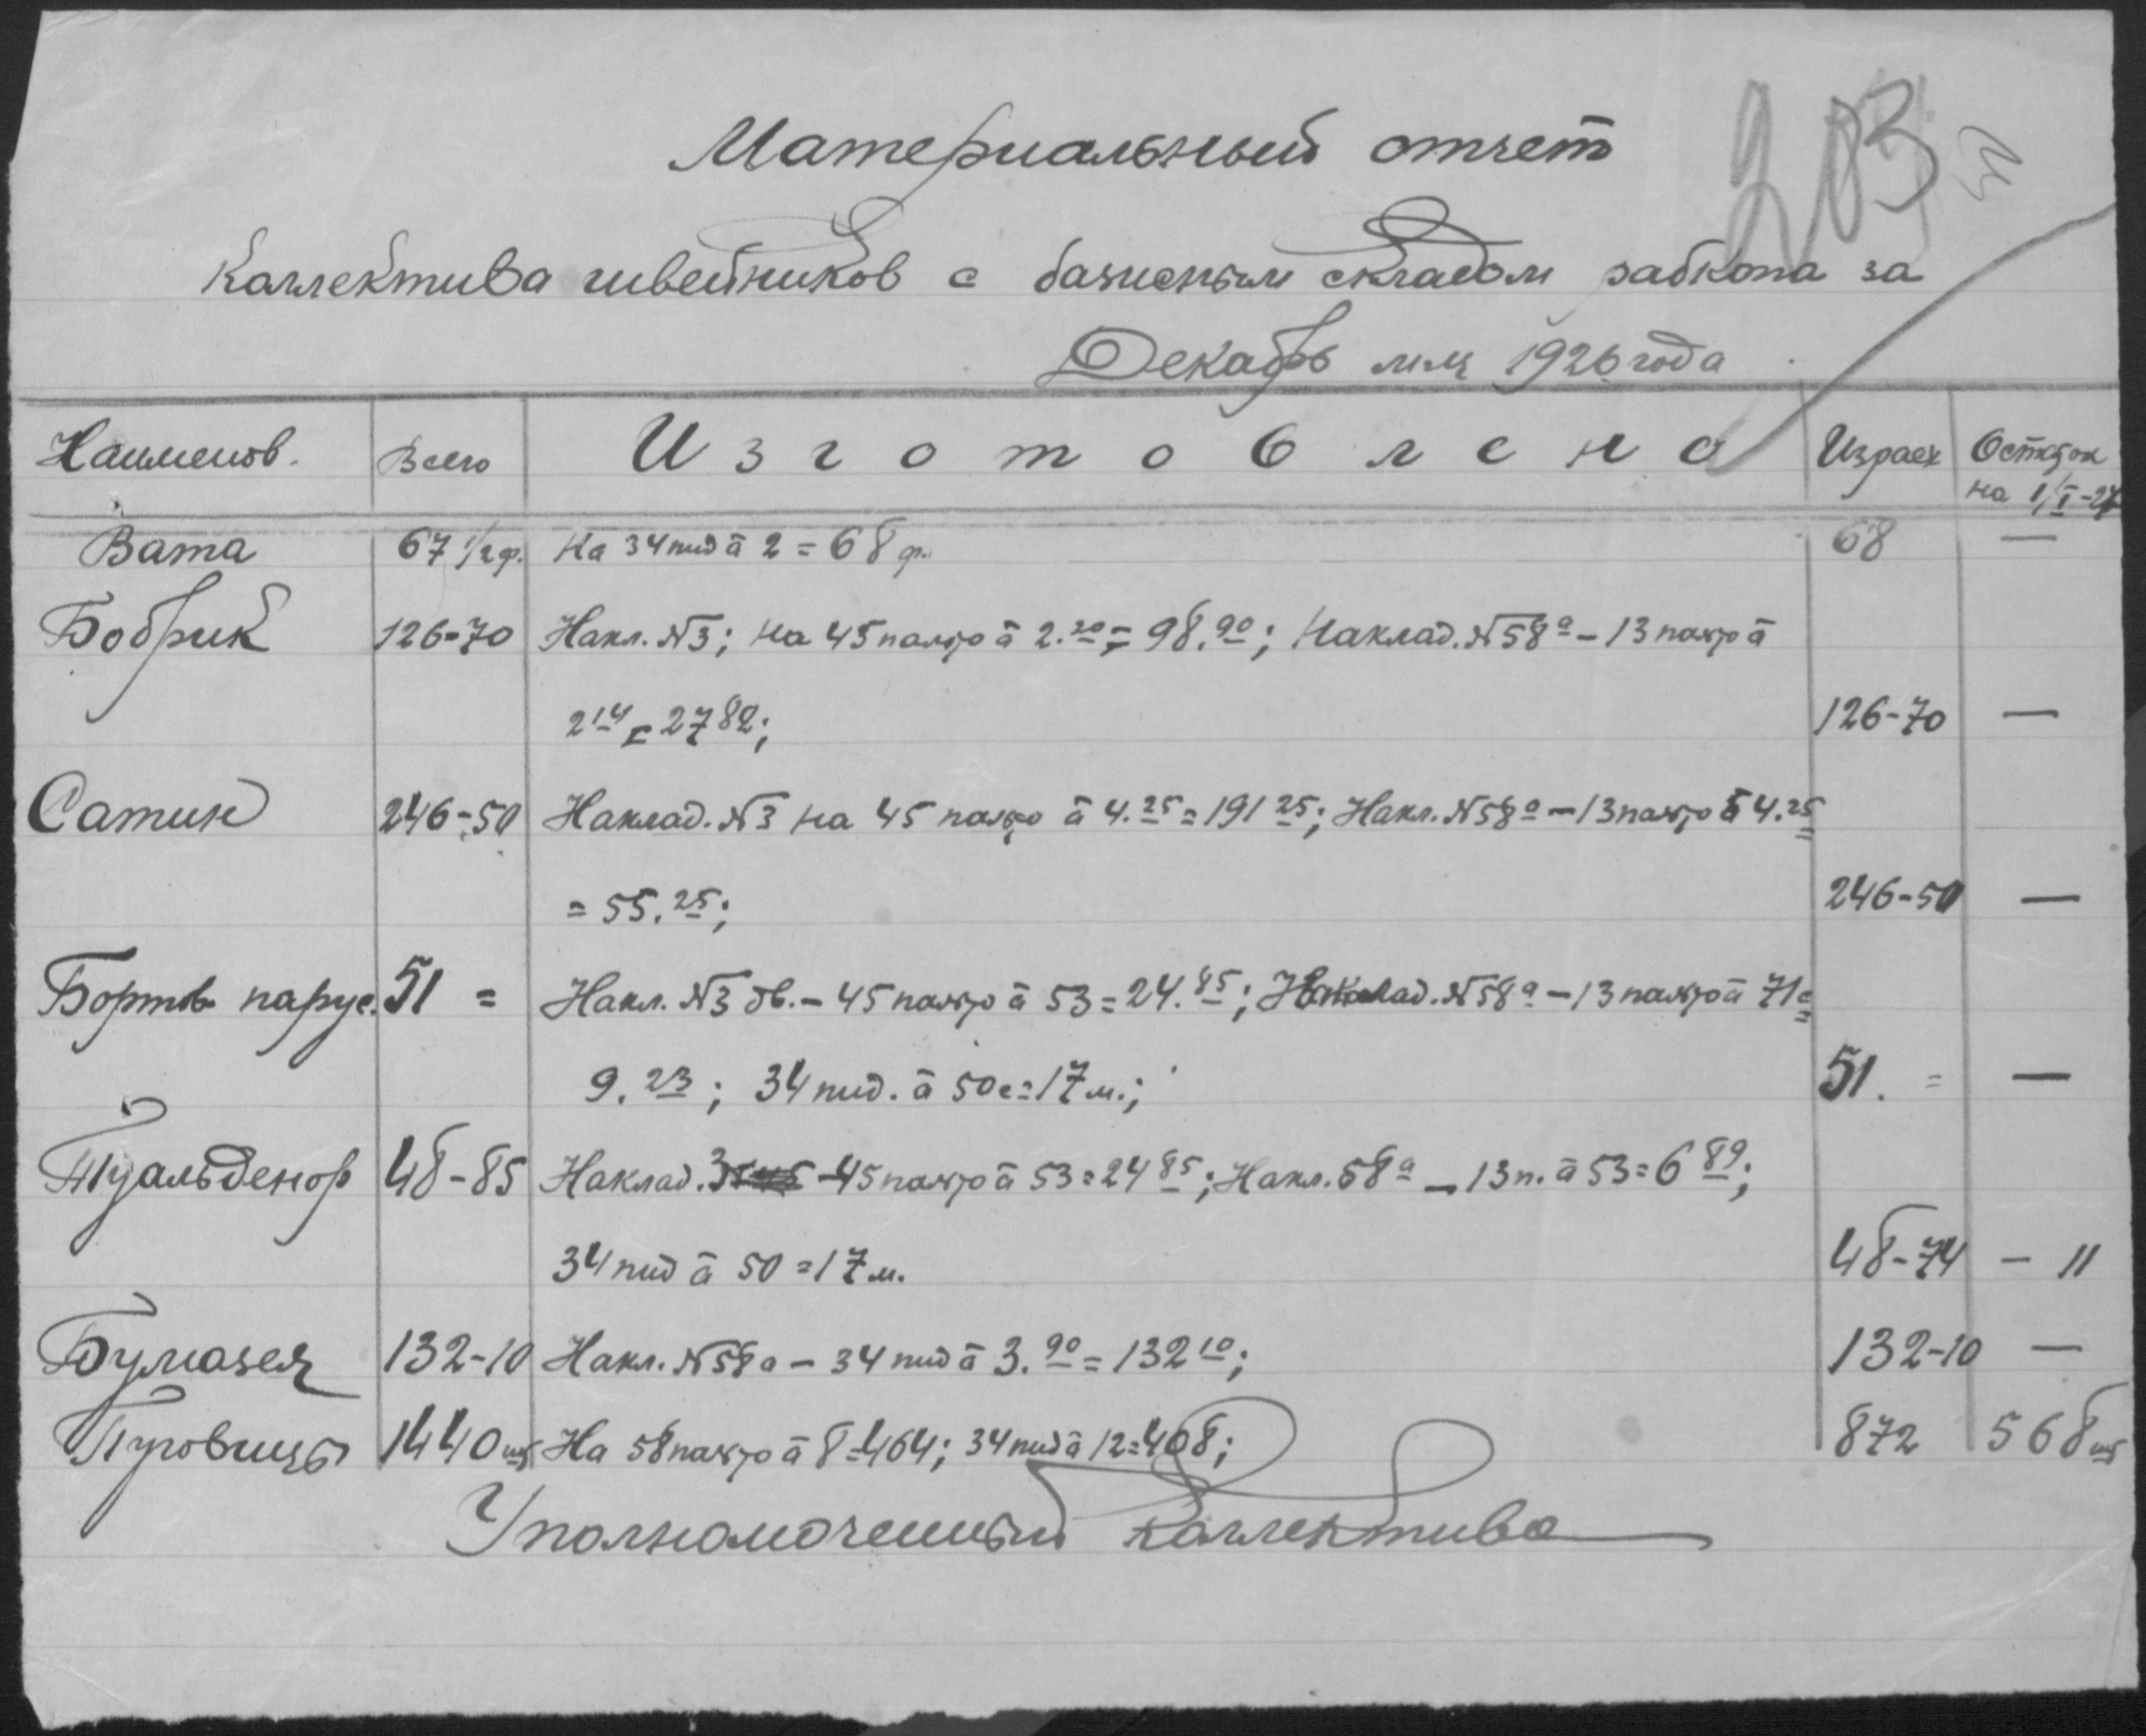 203
Материальный отчет
Каллектива швейников с базисным складом рабкопа за
Декабрь м-ц 1926 года
Наименов. Всего Изготовлено Израсх Остаток
на 1/I-27
Вата 67 1/2 ф. На 34 пид à 2 = 68 ф. 68 —
Бобрик 126-70 Накл. №3; на 45 пальто à 2.20 = 98.90; Наклад. №58а – 13 пальто à
2 14 = 27 82; 126-70 —
Сатин 246-50 Наклад. №3 на 45 пальто à 4.25 = 191 25; Накл. №58а – 13 пальто à 4.25
= 55.25; 246-50 —
Бортов парус. 51 = Накл. №3 – 45 пальто à 53 = 24.85; Наклад. №58а – 13 пальто à 71 =
9.23; 34 пид. à 50 с = 17 м.; 51. = —
Туальденор 48-85 Наклад. 3 – 45 пальто à 53 = 24 85; Накл. 58а – 13 п. à 53 = 6 89;
34 пид à 50 = 17 м. 48-74 – 11
Бумазея 132-10 Накл. №58а – 34 пид à 3.90 = 132 10; 132-10 —
Пуговицы 1440 шт На 58 пальто à 8 = 464; 34 пид à 12 = 408; 872 568 шт
Уполномоченный каллектива